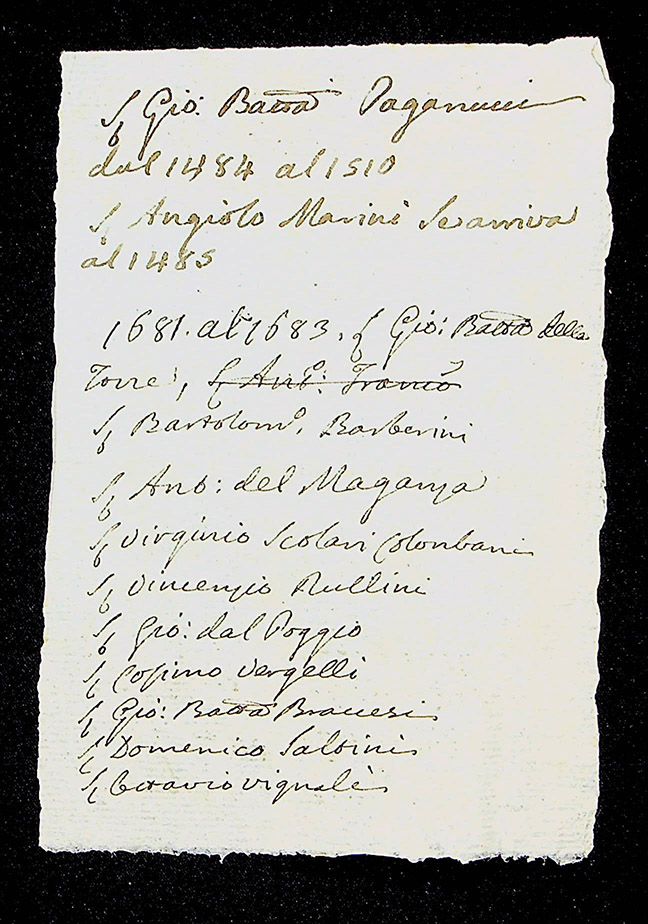 S Gio: Batta Paganucci
dal 1484 al 1510
S Angiolo Marini Se arriva
al 1485
1681. al 1683. S Gio: Batta della
Torre, S Ant.o: Franco
S Bartolom.o Barberini
S Ant: del Maganza
S Virginio Scolari Colonbani
S Vincenzio Rullini
S Gio: dal Poggio
S Cosimo Vergelli
S Gio: Batta Braccesi
S Domenico Saltini
S Ottavio Vignali